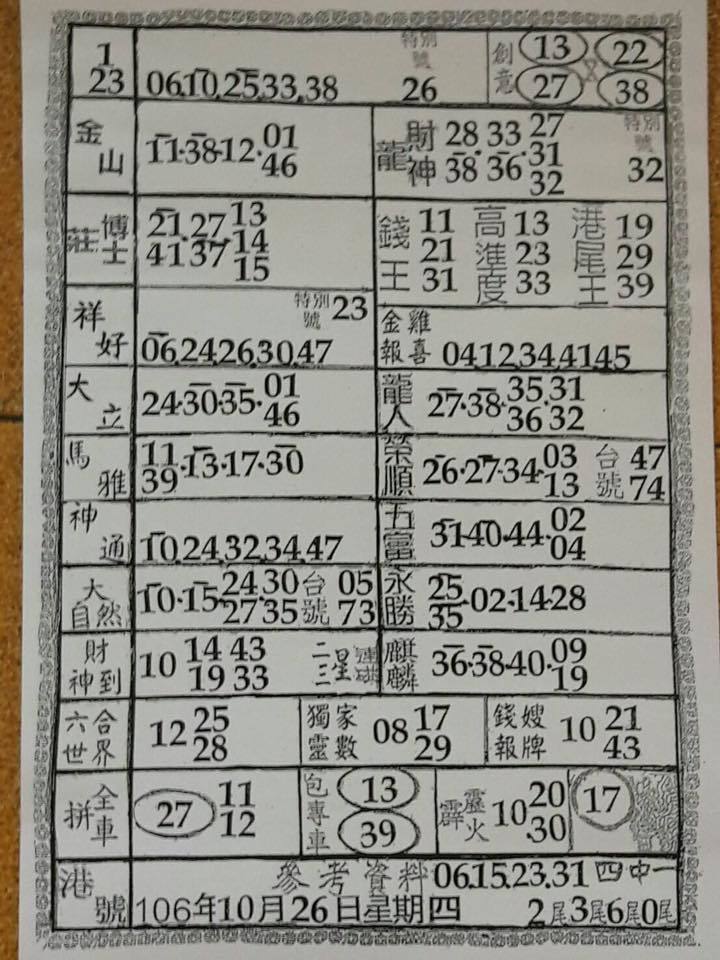 1 23 06.10.25.33.38 特別號 26 創意 13 22 27 38
金山 11.38.12.01 46 財神龍 28.33.27 38.36.31 32 特別號 32
博士莊 21.27.13 41.37.14 15 錢王 11 21 31 高進度 13 23 33 港尾王 19 29 39
祥好 06.24.26.30.47 特別號 23 金雞報喜 04.12.34.41.45
大立 24.30.35.01 46 龍人 27.38.35.31 36 32
馬雅 11 39.13.17.30 榮順 26.27.34.03 13 台號 47 74
神通 10.24.32.34.47 五富 31.40.44.02 04
大自然 10.15.24.30 27 35 台號 05 73 永勝 25 35.02.14.28
財神到 10 14 43 19 33 二三星連碰 麒麟 36.38.40.09 19
六合世界 12 25 28 獨家靈數 08 17 29 錢嫂報牌 10 21 43
全車拼 27 11 12 包專車 13 39 霹靂火 10 20 .30 17
港號 參考資料 06.15.23.31 四中一
106年10月26日星期四 2尾3尾6尾0尾